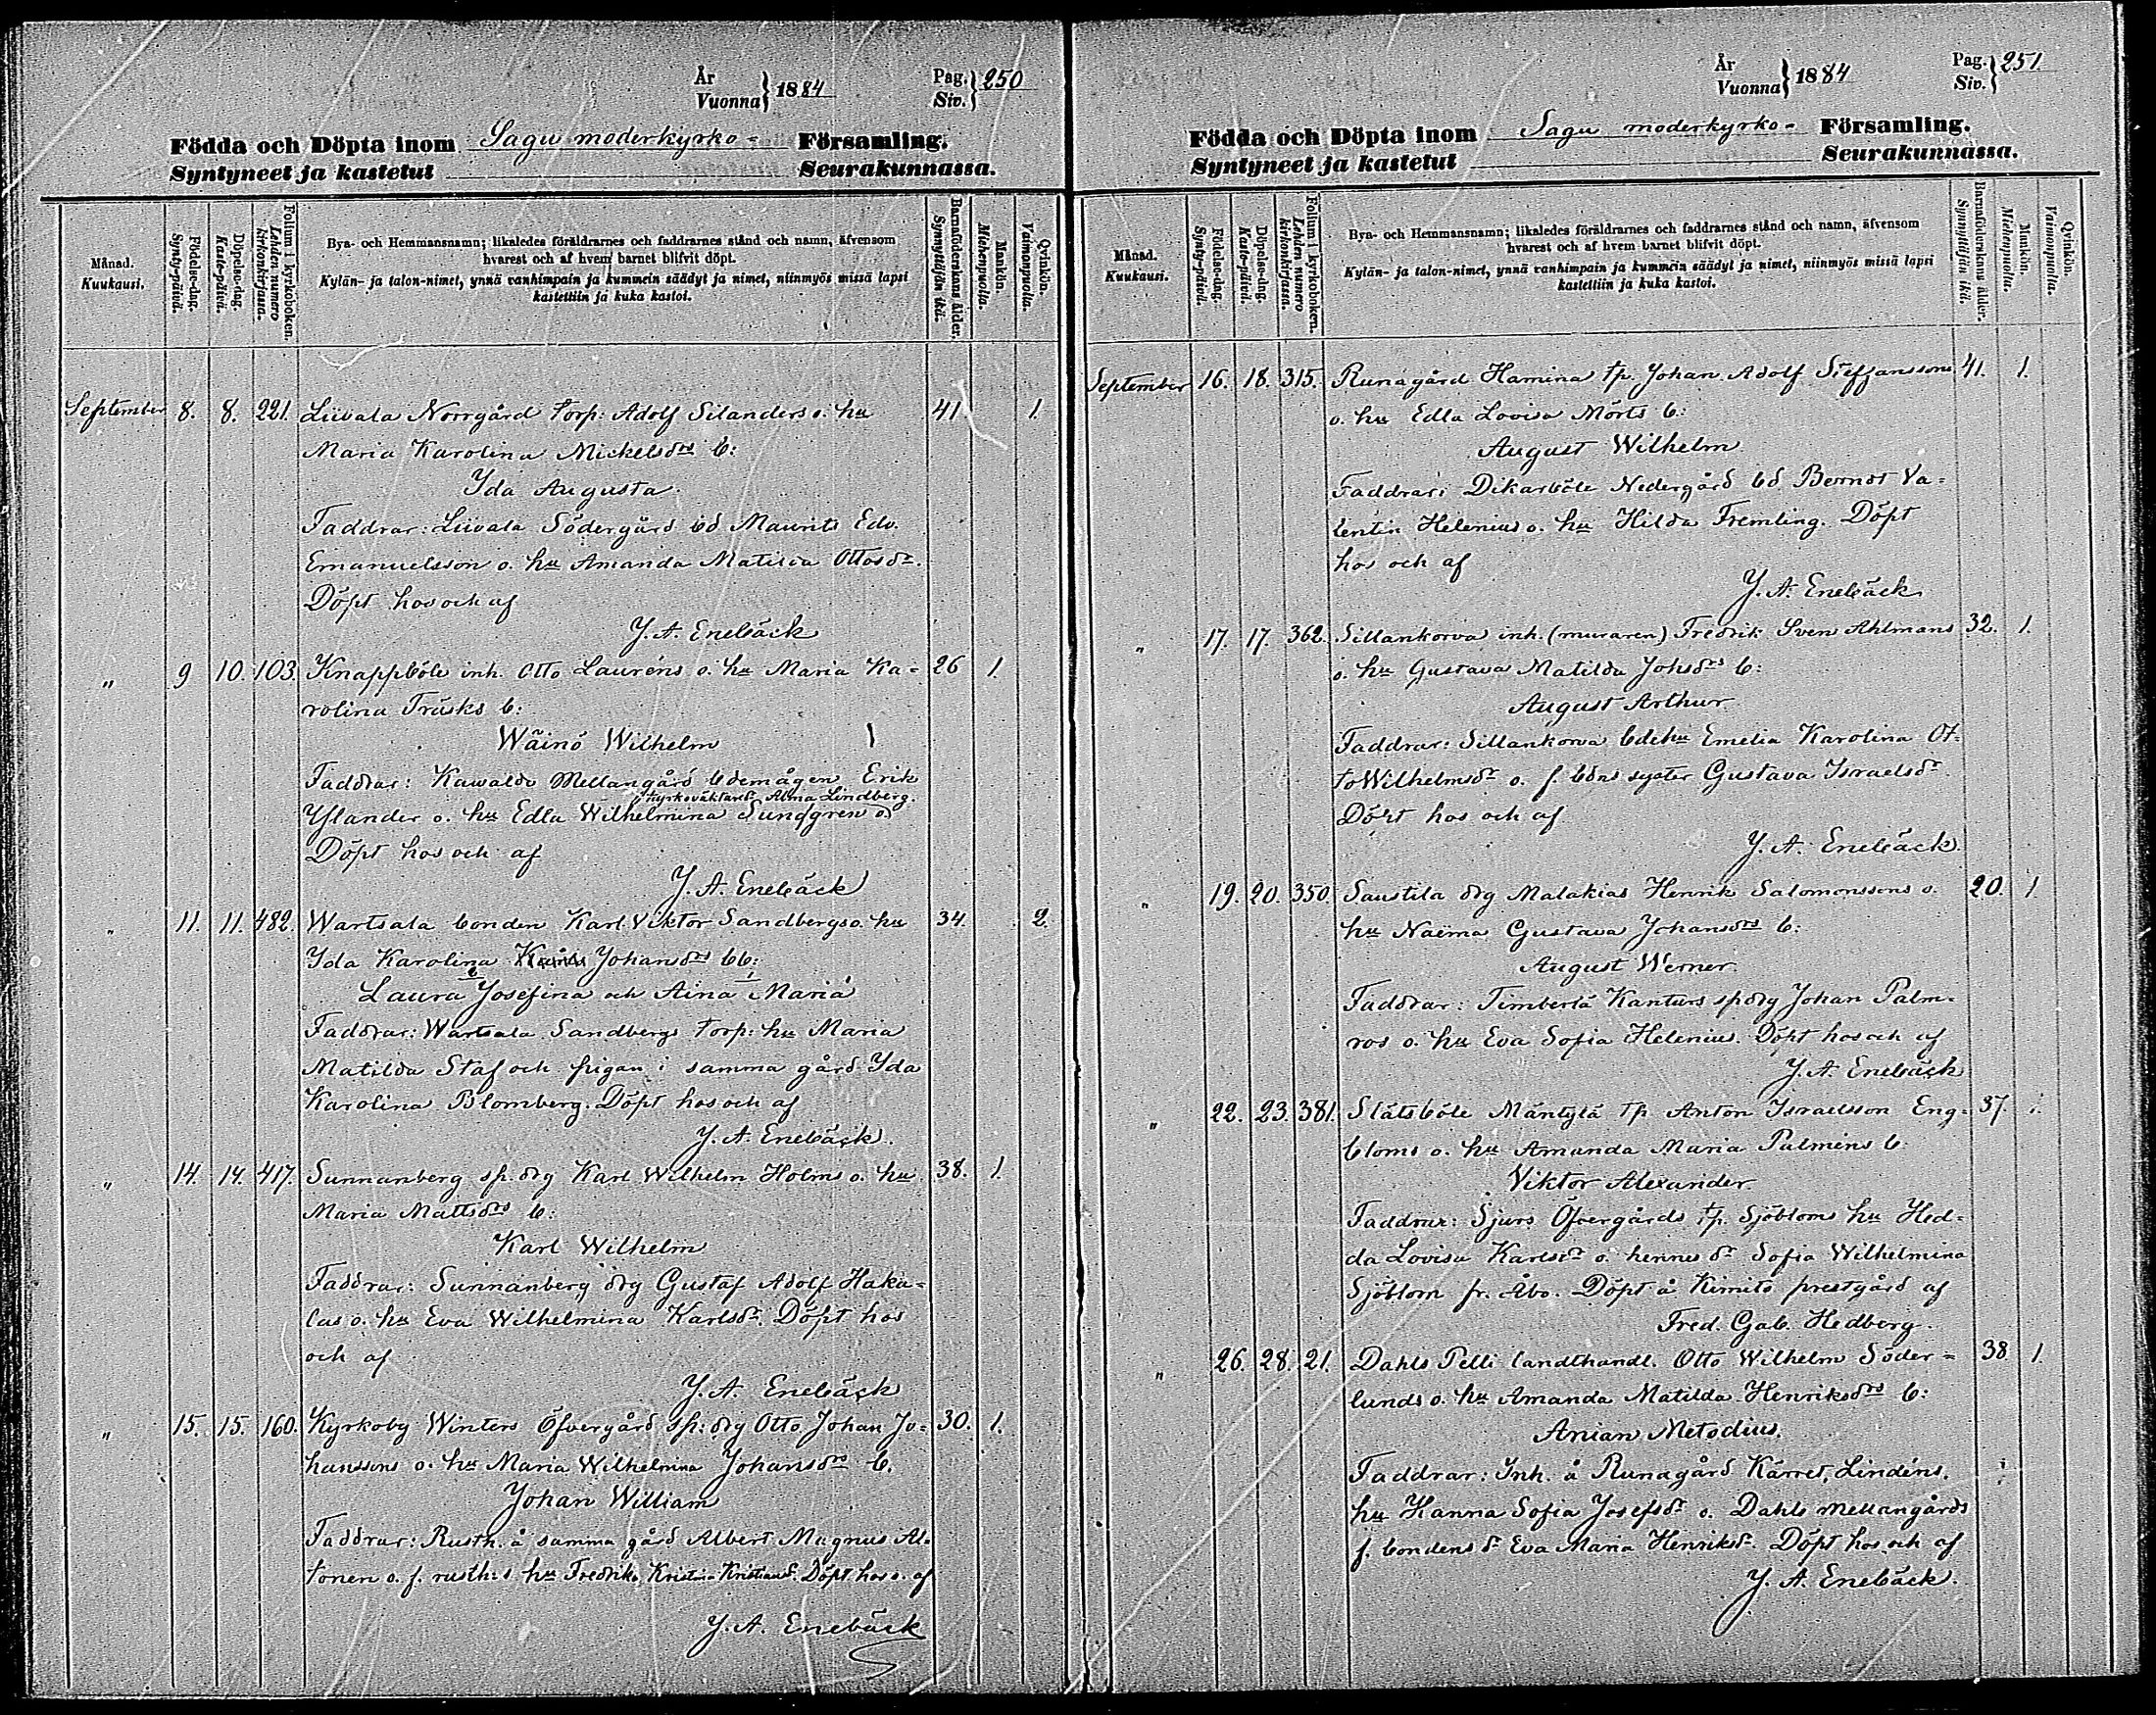 År
Vuonna } 1884
Pag.
Siv. } 250
Födda och Döpta inom Sagu moderkyrko- Församling.
Syntyneet ja kastetut Seurakunnassa.
Månad.
Kuukausi.
Födelse-dag.
Synty-päivä.
Döpelse-dag.
Kaste-päivä.
Folium i kyrkoboken.
Lehden numero kirkonkirjassa.
Bya- och Hemmansnamn; likaledes föräldrarnes och faddrarnes stånd och namn, äfvensom
hvarest och af hvem barnet blifvit döpt.
Kylän- ja talon-nimet, ynnä vanhimpain ja kummein säädyt ja nimet, niinmyös missä lapsi
kastettiin ja kuka kastoi.
Barnaföderskans ålder.
Synnyttäjän ikä.
Mankön.
Miehenpuolia.
Qvinkön.
Vaimonpuolia.
September 8. 8. 221. Liivala Norrgård torp: Adolf Silanders o. hu 41 1.
Maria Karolina Mickelsdrs b:
Yda Augusta.
Faddrar: Liivala Södergård bd Maurits Edv.
Emanuelsson o. hu Amanda Matilda Ottosdr.
Döpt hos och af
J. A. Enebäck
" 9 10. 103. Knappböle inh. Otto Lauréns o. hu Maria Ka- 26 1.
rolina Träsks b:
Wäinö Wilhelm
Faddrar: Kawaldo Mellangård bdemågen Erik
kyrkoväktaredr Alma Lindberg.
Yslander o. hu Edla Wilhelmina Sundgren o.
Döpt hos och af
J. A. Enebäck
" 11. 11. 482. Wartsala bonden Karl Viktor Sandbergs o. hu 34. 2.
Yda Karolina Johansdrs bb:
Laura Josefina och Aina Maria
Faddrar: Wartsala Sandbergs torp: hu Maria
Matilda Staf och pigan i samma gård Yda
Karolina Blomberg. Döpt hos och af
J. A. Enebäck.
" 14. 14. 417. Sunnanberg sp. drg Karl Wilhelm Holms o. hu 38. 1.
Maria Mattsdrs b:
Karl Wilhelm
Faddrar: Sunnanberg drg Gustaf Adolf Haka-
las o. hu Eva Wilhelmina Karlsdr. Döpt hos
och af
J. A. Enebäck
" 15. 15. 160. Kyrkoby Winters Öfvergård sp: drg Otto Johan Jo- 30. 1.
hanssons o. hu Maria Wilhelmina Johansdrs b.
Johan William
Faddrar: Rusth. å samma gård Albert Magnus Al-
tonen o. f. rusth:s hu Fredrika Kristina Kristiansdr. Döpt hos o. af
J. A. Enebäck
År
Vuonna } 1884
Pag.
Siv. } 251.
Födda och Döpta inom Sagu moderkyrko- Församling.
Syntyneet ja kastetut Seurakunnassa.
Månad.
Kuukausi.
Födelse-dag.
Synty-päivä.
Döpelse-dag.
Kaste-päivä.
Folium i kyrkoboken.
Lehden numero kirkonkirjassa.
Bya- och Hemmansnamn; likaledes föräldrarnes och faddrarnes stånd och namn, äfvensom
hvarest och af hvem barnet blifvit döpt.
Kylän- ja talon-nimet, ynnä vanhimpain ja kummein säädyt ja nimet, niinmyös missä lapsi
kastettiin ja kuka kastoi.
Barnaföderskans ålder.
Synnyttäjän ikä.
Mankön.
Miehenpuolia.
Qvinkön.
Vaimonpuolia.
September 16. 18. 315. Runagård Hamina tp. Johan Adolf Steffanssons 41. 1.
o. hu Edla Lovisa Mörts b:
August Wilhelm
Faddrar: Dikarböle Nedergård bd Berndt Va-
lentin Helenius o. hu Hilda Fremling. Döpt
hos och af
J. A. Enebäck
" 17. 17. 362. Sillankorva inh. (muraren) Fredrik Sven Ahlmans 32. 1.
o. hu Gustava Matilda Johsdrs b:
August Arthur
Faddrar: Sillankorva bdehu Emelia Karolina Ot-
to Wilhelmsdr o. f. bdns syster Gustava Israelsdr.
Döpt hos och af
J. A. Enebäck.
" 19. 20. 350. Saustila drg Malakias Henrik Salomonssons o. 20. 1.
hu Naëma Gustava Johansdrs b:
August Werner.
Faddrar: Timberlä Kanturs sp drg Johan Palm-
ros o. hu Eva Sofia Helenius. Döpt hos och af
J. A. Enebäck
" 22. 23. 381. Slätsböle Mäntylä tp. Anton Israelsson Eng- 37. 1.
bloms o. hu Amanda Maria Palmens b.
Viktor Alexander
Faddrar: Sjurs Öfvergårds tp. Sjöbloms hu Hed-
da Lovisa Karlsdr o. hennes dr Sofia Wilhelmina
Sjöblom fr. Åbo. Döpt å Kimito prestgård af
Fred. Gab. Hedberg.
" 26. 28. 21. Dahls Pelli landthandl. Otto Wilhelm Söder- 38. 1.
lunds o. hu Amanda Matilda Henriksdrs b:
Anian Metodius.
Faddrar: Inh. å Runagård Kärret, Lindéns.
hu Hanna Sofia Josefsdr o. Dahls Mellangårds
f. bondens dr Eva Maria Henriksdr. Döpt hos och af
J. A. Enebäck.